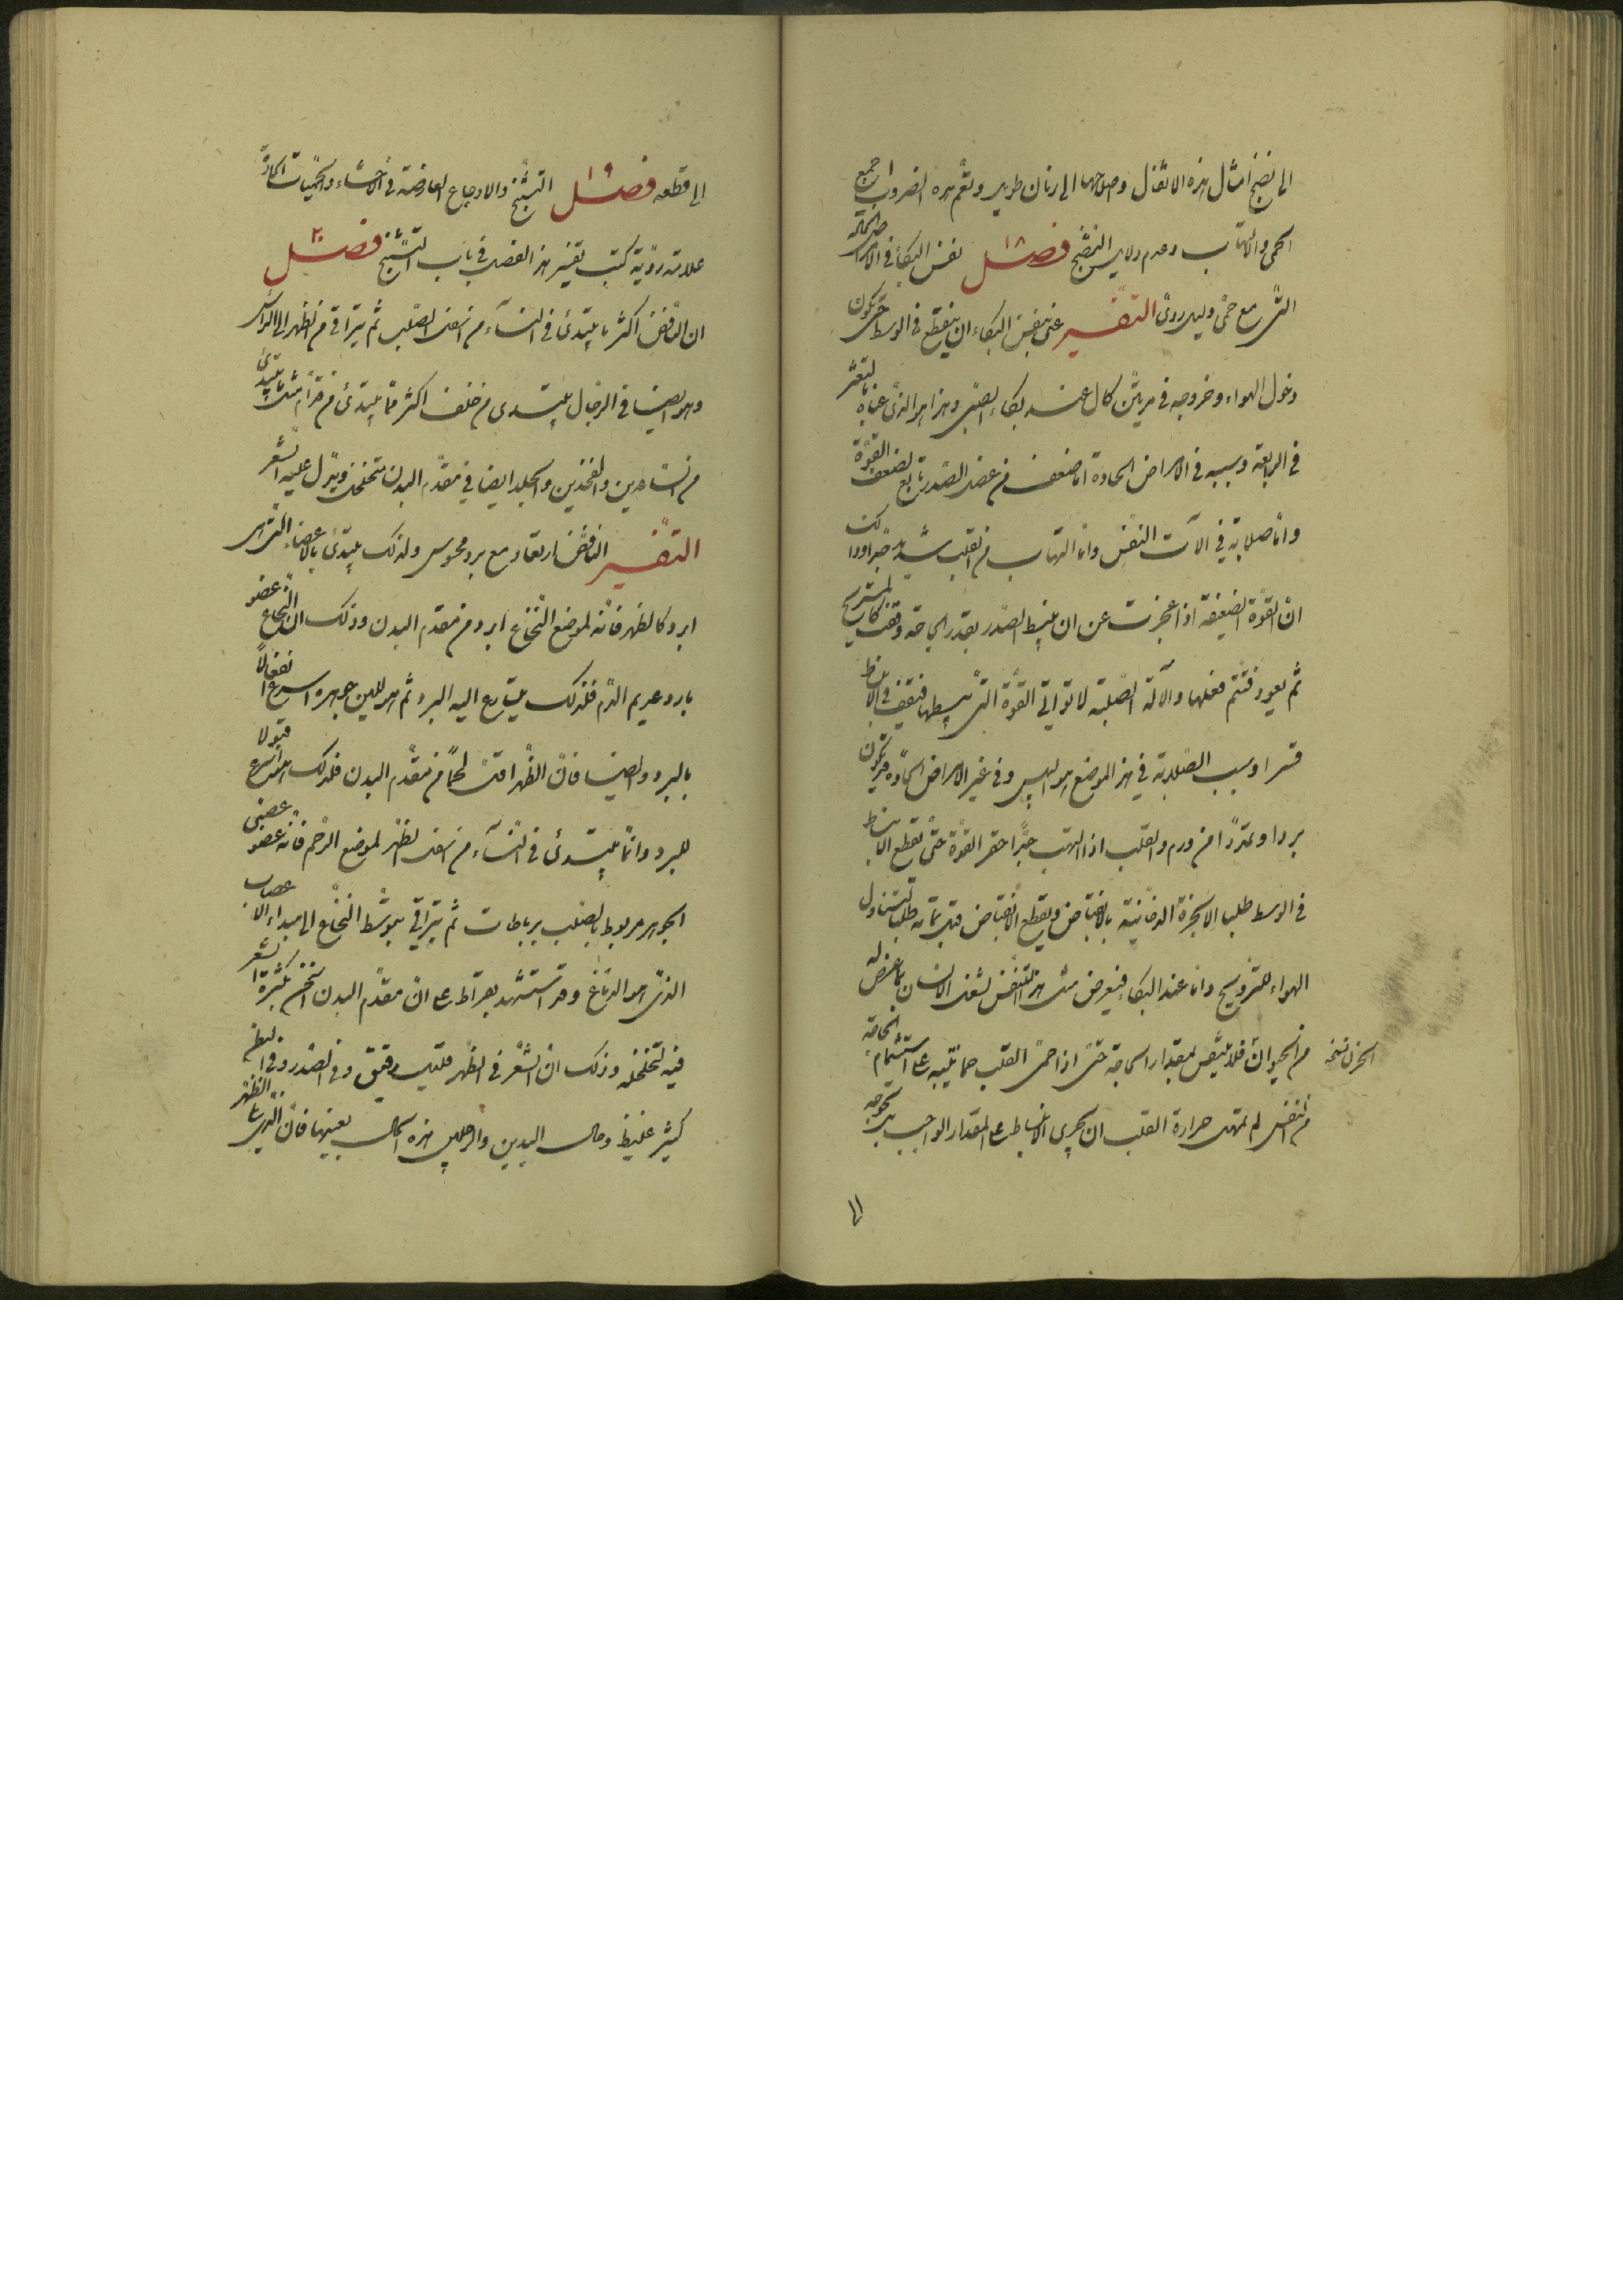 الى نضج امثال هذه الاثفال واصلاحها الى زمان طويل وتعم هذه الضروب جميع
الحمى والالتهاب وعدم دلايل النضج فصل ١٨ نفس البكاء في الامراض الحادة
التى مع حمى دليل ردى التفسير عنى بنفس البكاء ان ينقطع في الوسط حتى يكون
دخول الهواء وخروجه في مرتين كالحال عند بكاء الصبى وهذا هو الذى عناه بالتعثر
في الرابعة وسببه في الامراض الحادة اما ضعف من عضل الصدر تابع لضعف القوة
واما صلابة في آلات النفس واما التهاب من القلب شديد جدا وذلك
ان القوة الضعيفة اذا عجزت عن ان يبسط الصدر بقدر الحاجة وقفت كالمستريح
ثم يعود فتتم فعلها والآلة الصلبة لا تواتي القوة التى يبسطها فتقف في الانبساط
قسرا وسبب الصلابة في هذا الموضع هو اليبس وفي غير الامراض الحادة قد يكون
بردا وتمددا من ورم والقلب اذا التهب جدا حفز القوة حتى تقطع الانبساط
في الوسط طلبا لاخراج الابخرة الدخانية بالانقباض ويقطع الانقباض قبل تمامه طلبا لتناول
الهواء للترويح واما عند البكاء فيعرض مثل هذا التنفس لشغل الانسان بما عرض له
من الحزن نسخة
من الحيوان فلا يتنفس بمقدار الحاجة حتى اذا حمى القلب حما ينتبه على استتمام الحاجة
من النفس لم تمهل حرارة القلب ان يجرى الانبساط على المقدار الواجب بل تحوجه
الى
الى قطعه فصل ١٩ التشنج والاوجاع العارضة في الاحشاء والحميات الحادة
علامة ردية كتب تفسير هذا الفصل في باب التشنج فصل ٢٠
ان النافض اكثر ما يبتدئ في النساء من اسفل الصلب ثم يتراقى من الظهر الى الراس
وهو ايضا في الرجال يبتدى من خلف اكثر مما يبتدئ من قدام مثل ما يبتدئ
من الساعدين والفخذين والجلد ايضا في مقدم البدن متخلخل ويدل عليه الشعر
التفسير النافض ارتعاد مع برد محسوس ولذلك يبتدئ بالاعضاء التى هى
ابرد كالظهر فانه لموضع النخاع ابرد من مقدم البدن وذلك ان النخاع عضو
بارد عديم الدم فلذلك يسارع اليه البرد ثم هو للين جوهره اسرع انفعالا
بالبرد وايضا فان الظهر اقل لحما من مقدم البدن فلذلك هو اسرع قبولا
للبرد وانما يبتدئ في النساء من اسفل الظهر لموضع الرحم فانه عضو عصبى
الجوهر مربوط بالصلب برباطات ثم يتراقى بتوسط النخاع الى مبداء الاعصاب
الذى هو الدماغ وقد استشهد بقراط على ان مقدم البدن اسخن بكثرة الشعر
فيه لتخلخله وذلك ان الشعر في الظهر قليل رقيق وفي الصدر وفي البطن
كثير غليظ وحال اليدين والرجلين هذه الحال بعينها فان الذى يلى الظهر